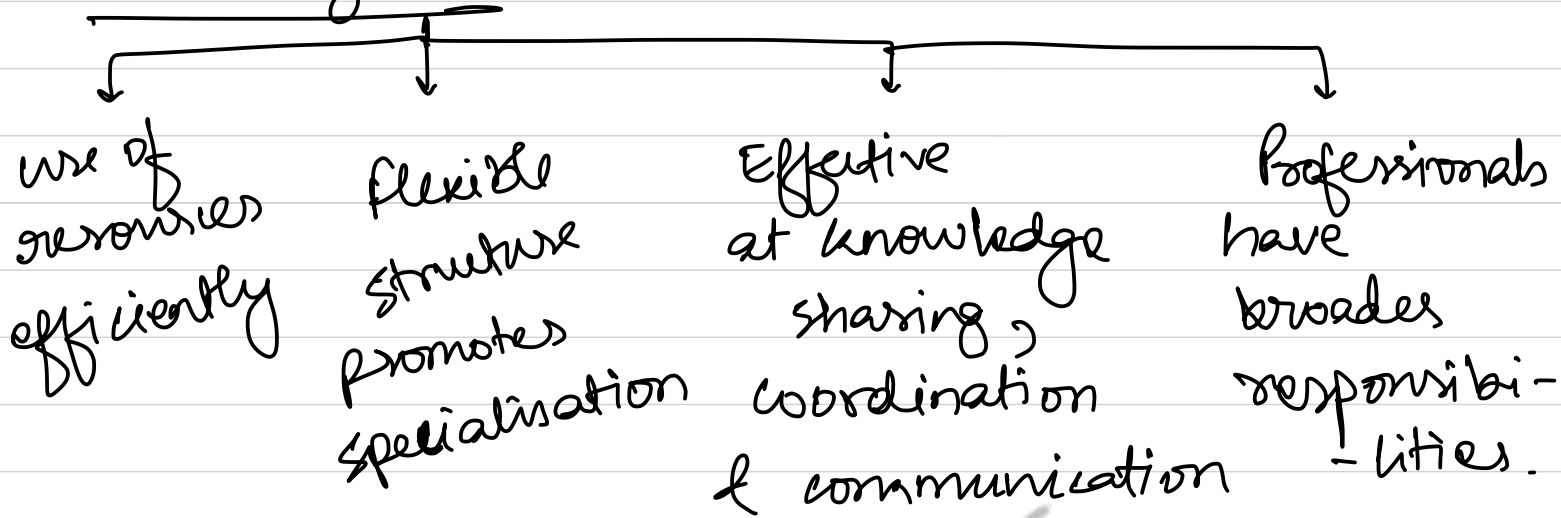 use of
resources
efficiently
flexible
structure
promotes
specialisation
Effective
at knowledge
sharing,
coordination
& communication
Professionals
have
broader
responsibi-
-lities.